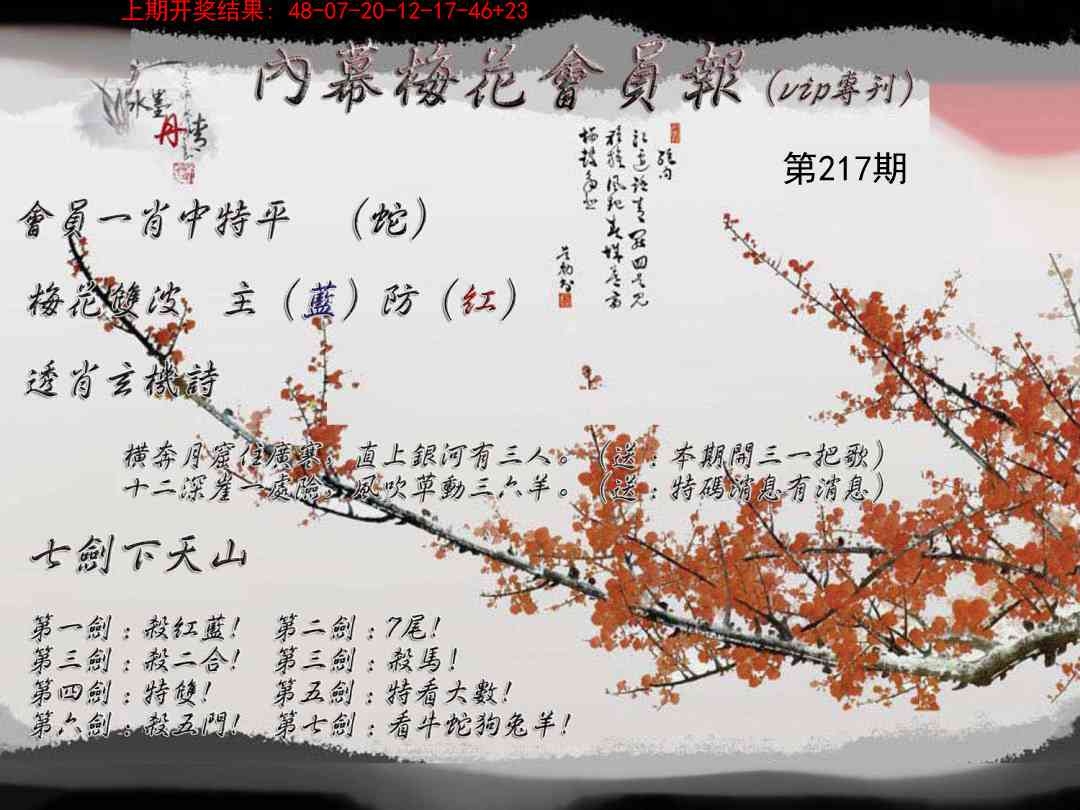 上期开奖结果: 48-07-20-12-17-46+23
內幕梅花會員報(vip專刊)
水墨丹青
第217期
會員一肖中特平 (蛇)
梅花雙波 主(藍)防(紅)
透肖玄機詩
橫奔月窟住廣寒,直上銀河有三人。(送:本期開三一把歌)
十二深崖一處險,風吹草動三六羊。(送:特碼消息有消息)
七劍下天山
第一劍:殺紅藍! 第二劍:7尾!
第三劍:殺二合! 第三劍:殺馬!
第四劍:特雙! 第五劍:特看大數!
第六劍:殺五門! 第七劍:看牛蛇狗兔羊!